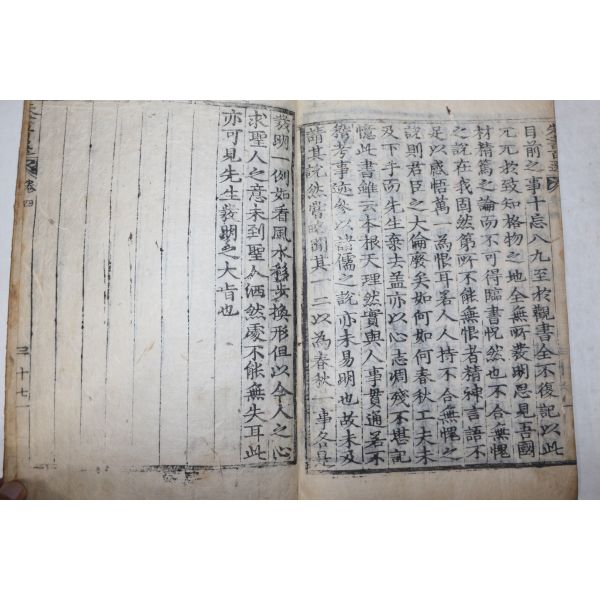 目前之事十忘八九至於觀書全不復記以此
元元於致知格物之地全無所發明思見吾國
材精篤之論而不可得臨書怳然也不合無愧
之說在我固然第所不能無恨者精神言語不
足以感悟萬一為恨耳若人人持不合無愧之
說則君臣之大倫廢矣如何如何春秋工夫未
及下手而先生棄去盖亦以心志凋殘不堪記
憶此書雖云本根天理然實與人事貫通若不
稽考事迹參以諸儒之說亦未易明也故未及
請其說然嘗略聞其一二以為春秋一事各是
發明一例如看風水移步換形但以今人之心
求聖人之意未到聖人洒然處不能無失耳此
亦可見先生發明之大旨也
卷四
三十七